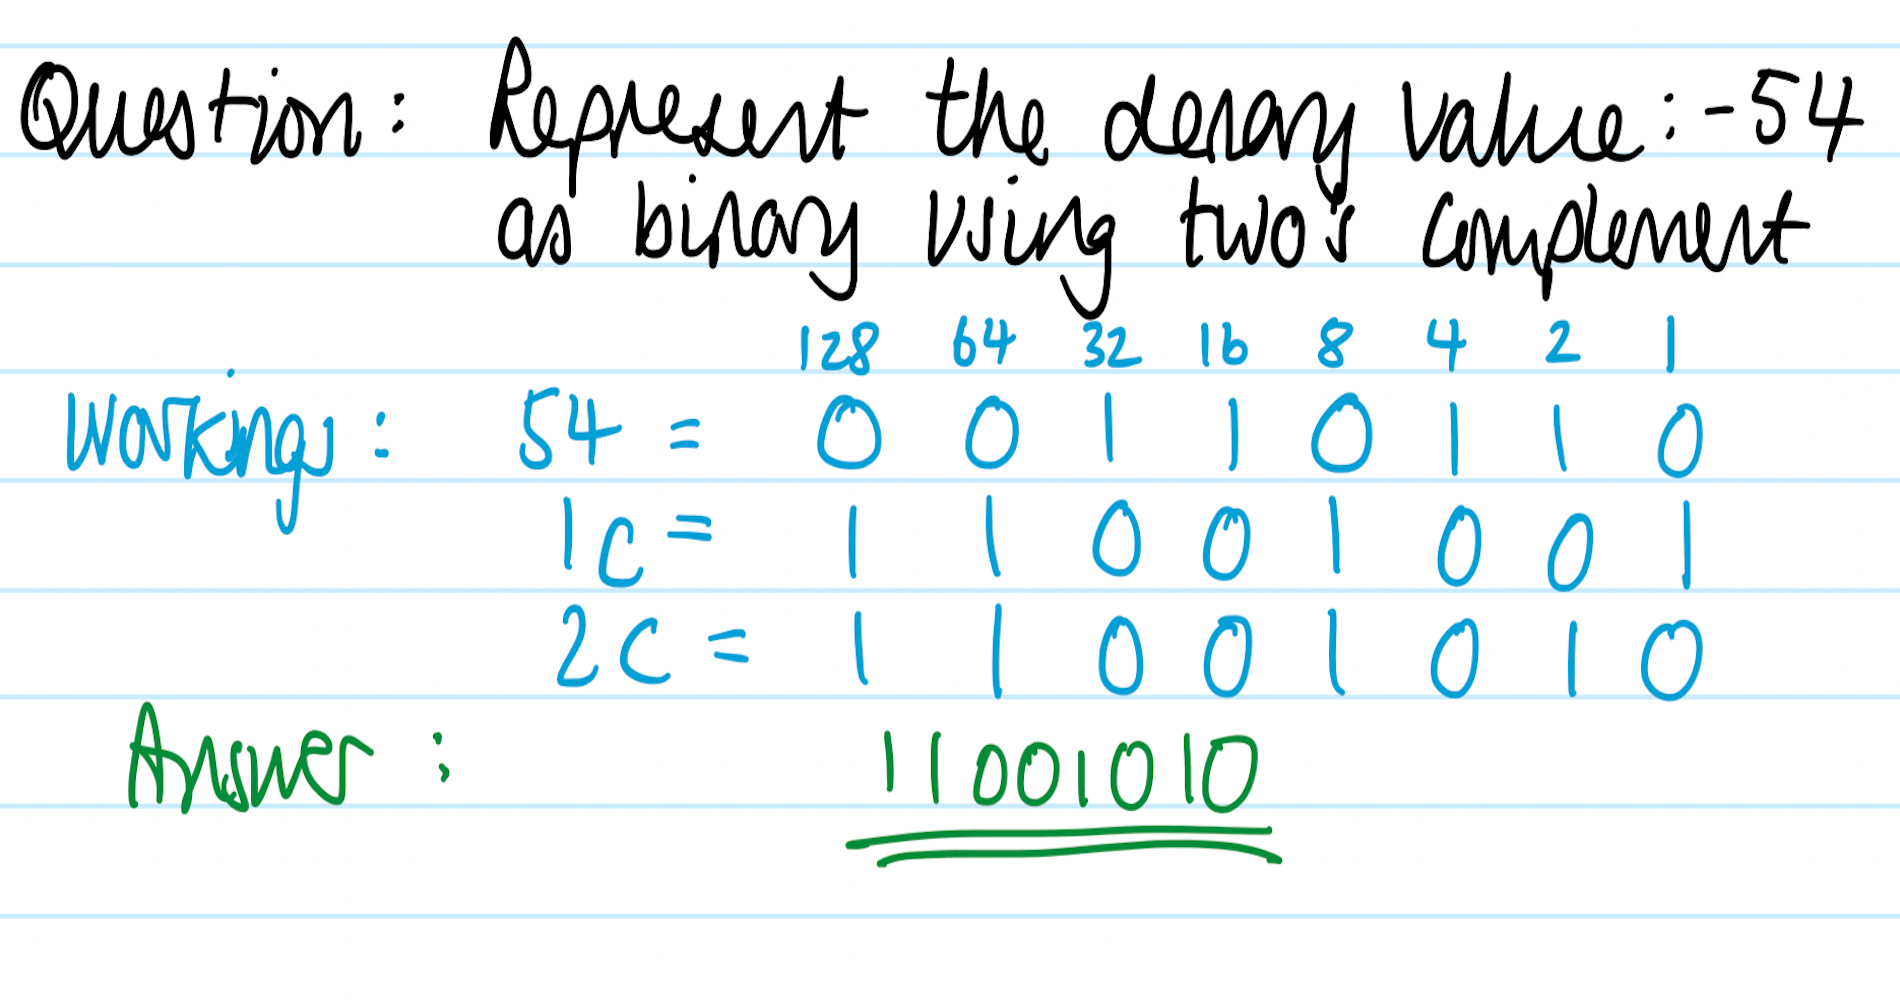 Question: Represent the denary value: -54
as binary using two's complement
128 64 32 16 8 4 2 1
Workings: 54 = 0 0 1 1 0 1 1 0
1C = 1 1 0 0 1 0 0 1
2C = 1 1 0 0 1 0 1 0
Answer: 11001010